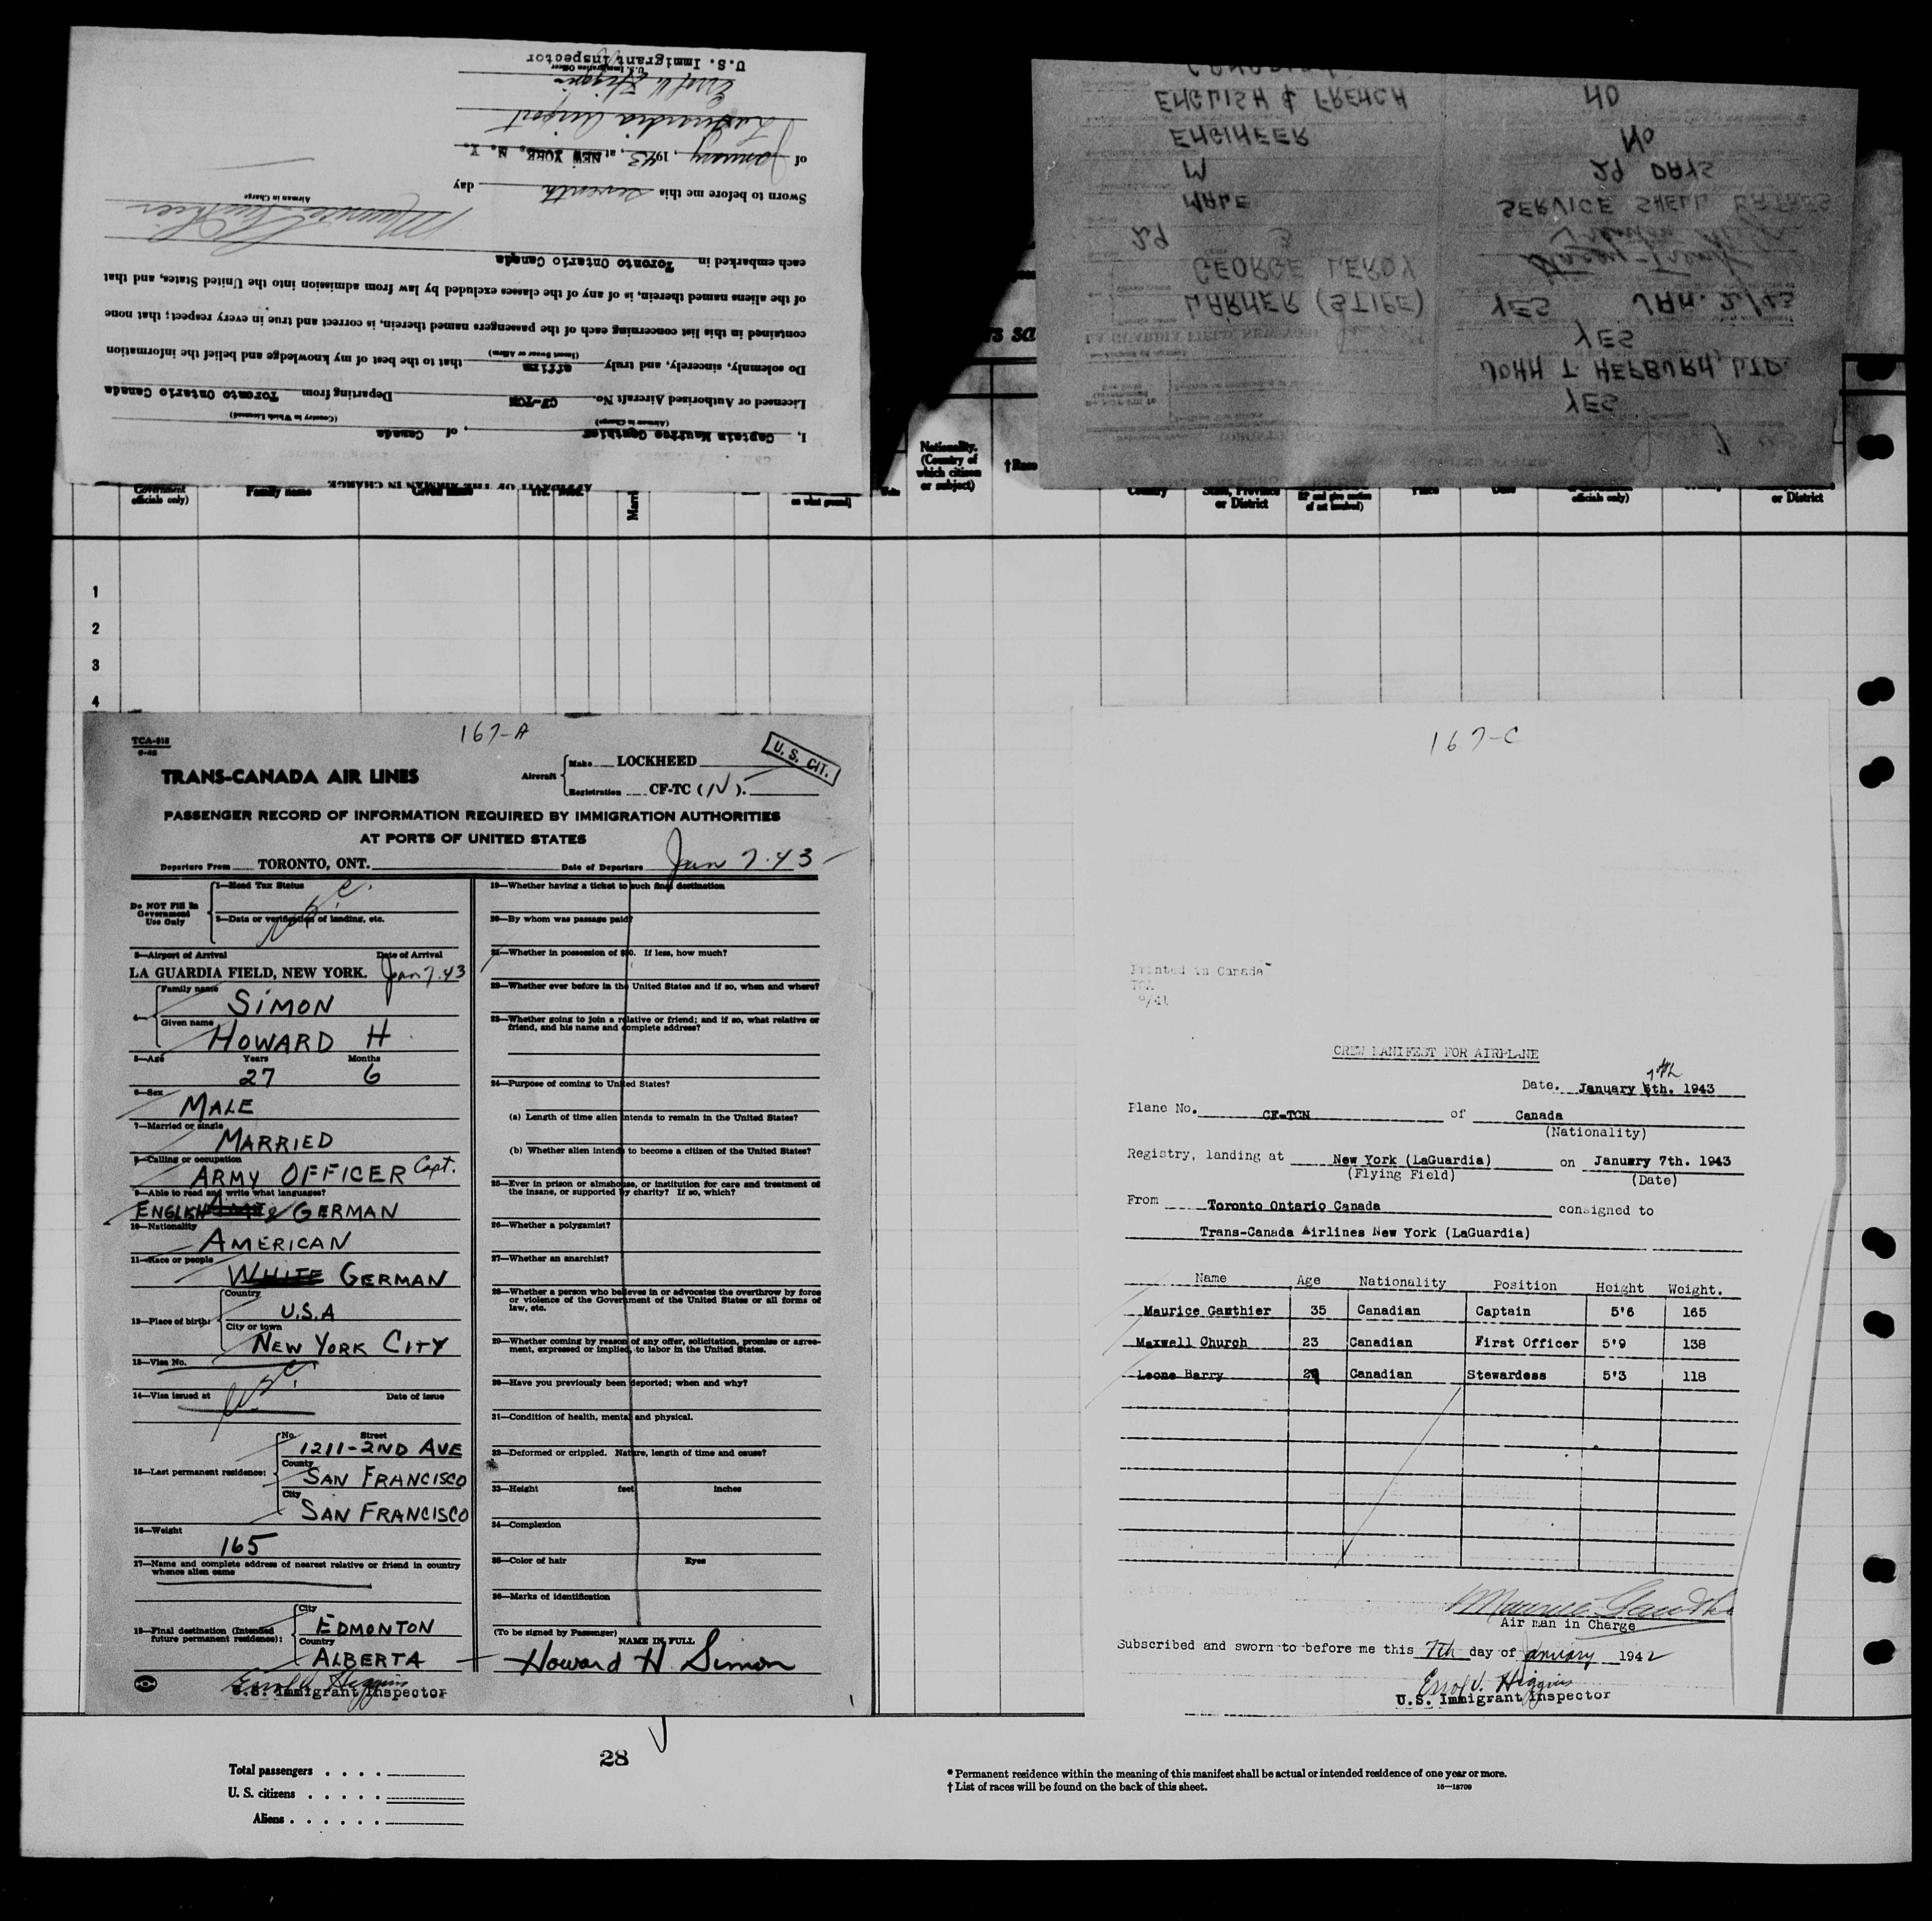 AFFIDAVIT OF THE AIRMAN IN CHARGE
I, Captain Maurice Gauthier, of Canada
(Airman in Charge) (Country in Which Licensed)
Licensed or Authorized Aircraft No. CF-TCN Departing from Toronto Ontario Canada
Do solemnly, sincerely, and truly affirm that to the best of my knowledge and belief the information
(Insert Swear or Affirm)
contained in this list concerning each of the passengers named therein, is correct and true in every respect; that none
of the aliens named therein, is of any of the classes excluded by law from admission into the United States, and that
each embarked in Toronto Ontario Canada
Maurice Gauthier
Airman in Charge
Sworn to before me this seventh day
of January, 1943, at NEW YORK, N. Y.
LaGuardia Airport
Errol V. Higgins
U.S. Immigration Officer
U. S. Immigrant Inspector
YES
JOHN T. HEPBURN, LTD.
YES
YES JAN. 2/43
LA GUARDIA FIELD, NEW YORK
LARNER (STIPE)
GEORGE LEROY
29 3
SERVICE SHELL LATHES
MALE
29 DAYS
M
No
ENGINEER
ENGLISH & FRENCH
NO
Nationality.
(Country of
which citizen
or subject)
†Race
Government
officials only)
Family name
Given name
on what ground]
Country
State, Province
or District
Place
Date
officials only)
or District
1
2
3
4
167-A
TCA-518
TRANS-CANADA AIR LINES
Aircraft
Make LOCKHEED
Registration CF-TC (N).
U. S. CIT.
PASSENGER RECORD OF INFORMATION REQUIRED BY IMMIGRATION AUTHORITIES
AT PORTS OF UNITED STATES
Departure From TORONTO, ONT. Date of Departure Jan 7.43
Do NOT Fill in
Government
Use Only
1—Head Tax Status
2—Data or verification of landing, etc.
3—Airport of Arrival Date of Arrival
LA GUARDIA FIELD, NEW YORK. Jan 7.43
4— Family name
SIMON
Given name
HOWARD H
5—Age Years Months
27 6
6—Sex
MALE
7—Married or single
MARRIED
8—Calling or occupation
ARMY OFFICER Capt.
9—Able to read and write what languages?
ENGLISH & GERMAN
10—Nationality
AMERICAN
11—Race or people
WHITE GERMAN
12—Place of birth:
Country
U.S.A
City or town
NEW YORK CITY
13—Visa No.
14—Visa issued at Date of issue
15—Last permanent residence:
No. Street
1211-2ND AVE
County
SAN FRANCISCO
City
SAN FRANCISCO
16—Weight
165
17—Name and complete address of nearest relative or friend in country
whence alien came
18—Final destination (Intended
future permanent residence):
City
EDMONTON
Country
ALBERTA
Errol V. Higgins
U.S. Immigrant Inspector
19—Whether having a ticket to such final destination
20—By whom was passage paid?
21—Whether in possession of $50. If less, how much?
22—Whether ever before in the United States and if so, when and where?
23—Whether going to join a relative or friend; and if so, what relative or
friend, and his name and complete address?
24—Purpose of coming to United States?
(a) Length of time alien intends to remain in the United States?
(b) Whether alien intends to become a citizen of the United States?
25—Ever in prison or almshouse, or institution for care and treatment of
the insane, or supported by charity? If so, which?
26—Whether a polygamist?
27—Whether an anarchist?
28—Whether a person who believes in or advocates the overthrow by force
or violence of the Government of the United States or all forms of
law, etc.
29—Whether coming by reason of any offer, solicitation, promise or agree-
ment, expressed or implied, to labor in the United States.
30—Have you previously been deported; when and why?
31—Condition of health, mental and physical.
32—Deformed or crippled. Nature, length of time and cause?
33—Height feet inches
34—Complexion
35—Color of hair Eyes
36—Marks of identification
(To be signed by Passenger) NAME IN FULL
Howard H Simon
167-C
Printed in Canada
TCA
9/41
CREW MANIFEST FOR AIRPLANE
7th
Date. January 6th. 1943
Plane No. CF-TCN of Canada
(Nationality)
Registry, landing at New York (LaGuardia) on January 7th. 1943
(Flying Field) (Date)
From Toronto Ontario Canada consigned to
Trans-Canada Airlines New York (LaGuardia)
Name Age Nationality Position Height Weight.
Maurice Gauthier 35 Canadian Captain 5'6 165
Maxwell Church 23 Canadian First Officer 5'9 138
Leone Barry Canadian Stewardess 5'3 118
Maurice Gauthier
Air man in Charge
Subscribed and sworn to before me this 7th day of January 1942
Errol V. Higgins
U.S. Immigrant Inspector
28
Total passengers . . . .
U. S. citizens . . . . .
Aliens . . . . . .
* Permanent residence within the meaning of this manifest shall be actual or intended residence of one year or more.
† List of races will be found on the back of this sheet. 16—18709